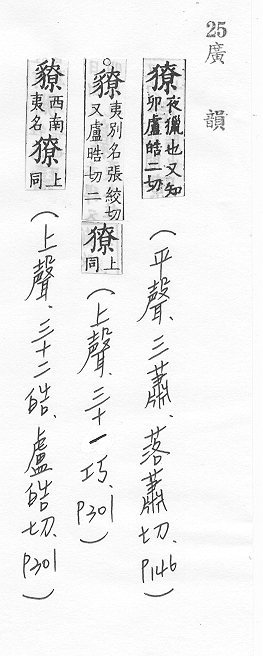 25廣韻
獠夜獵也又知卯盧晧二切(平聲、三蕭、落蕭切、P146)
䝤夷別名張絞切又盧晧切二獠上同(上聲、三十一巧、P301)
䝤西南夷名獠上同(上聲、三十二皓、盧皓切、P301)